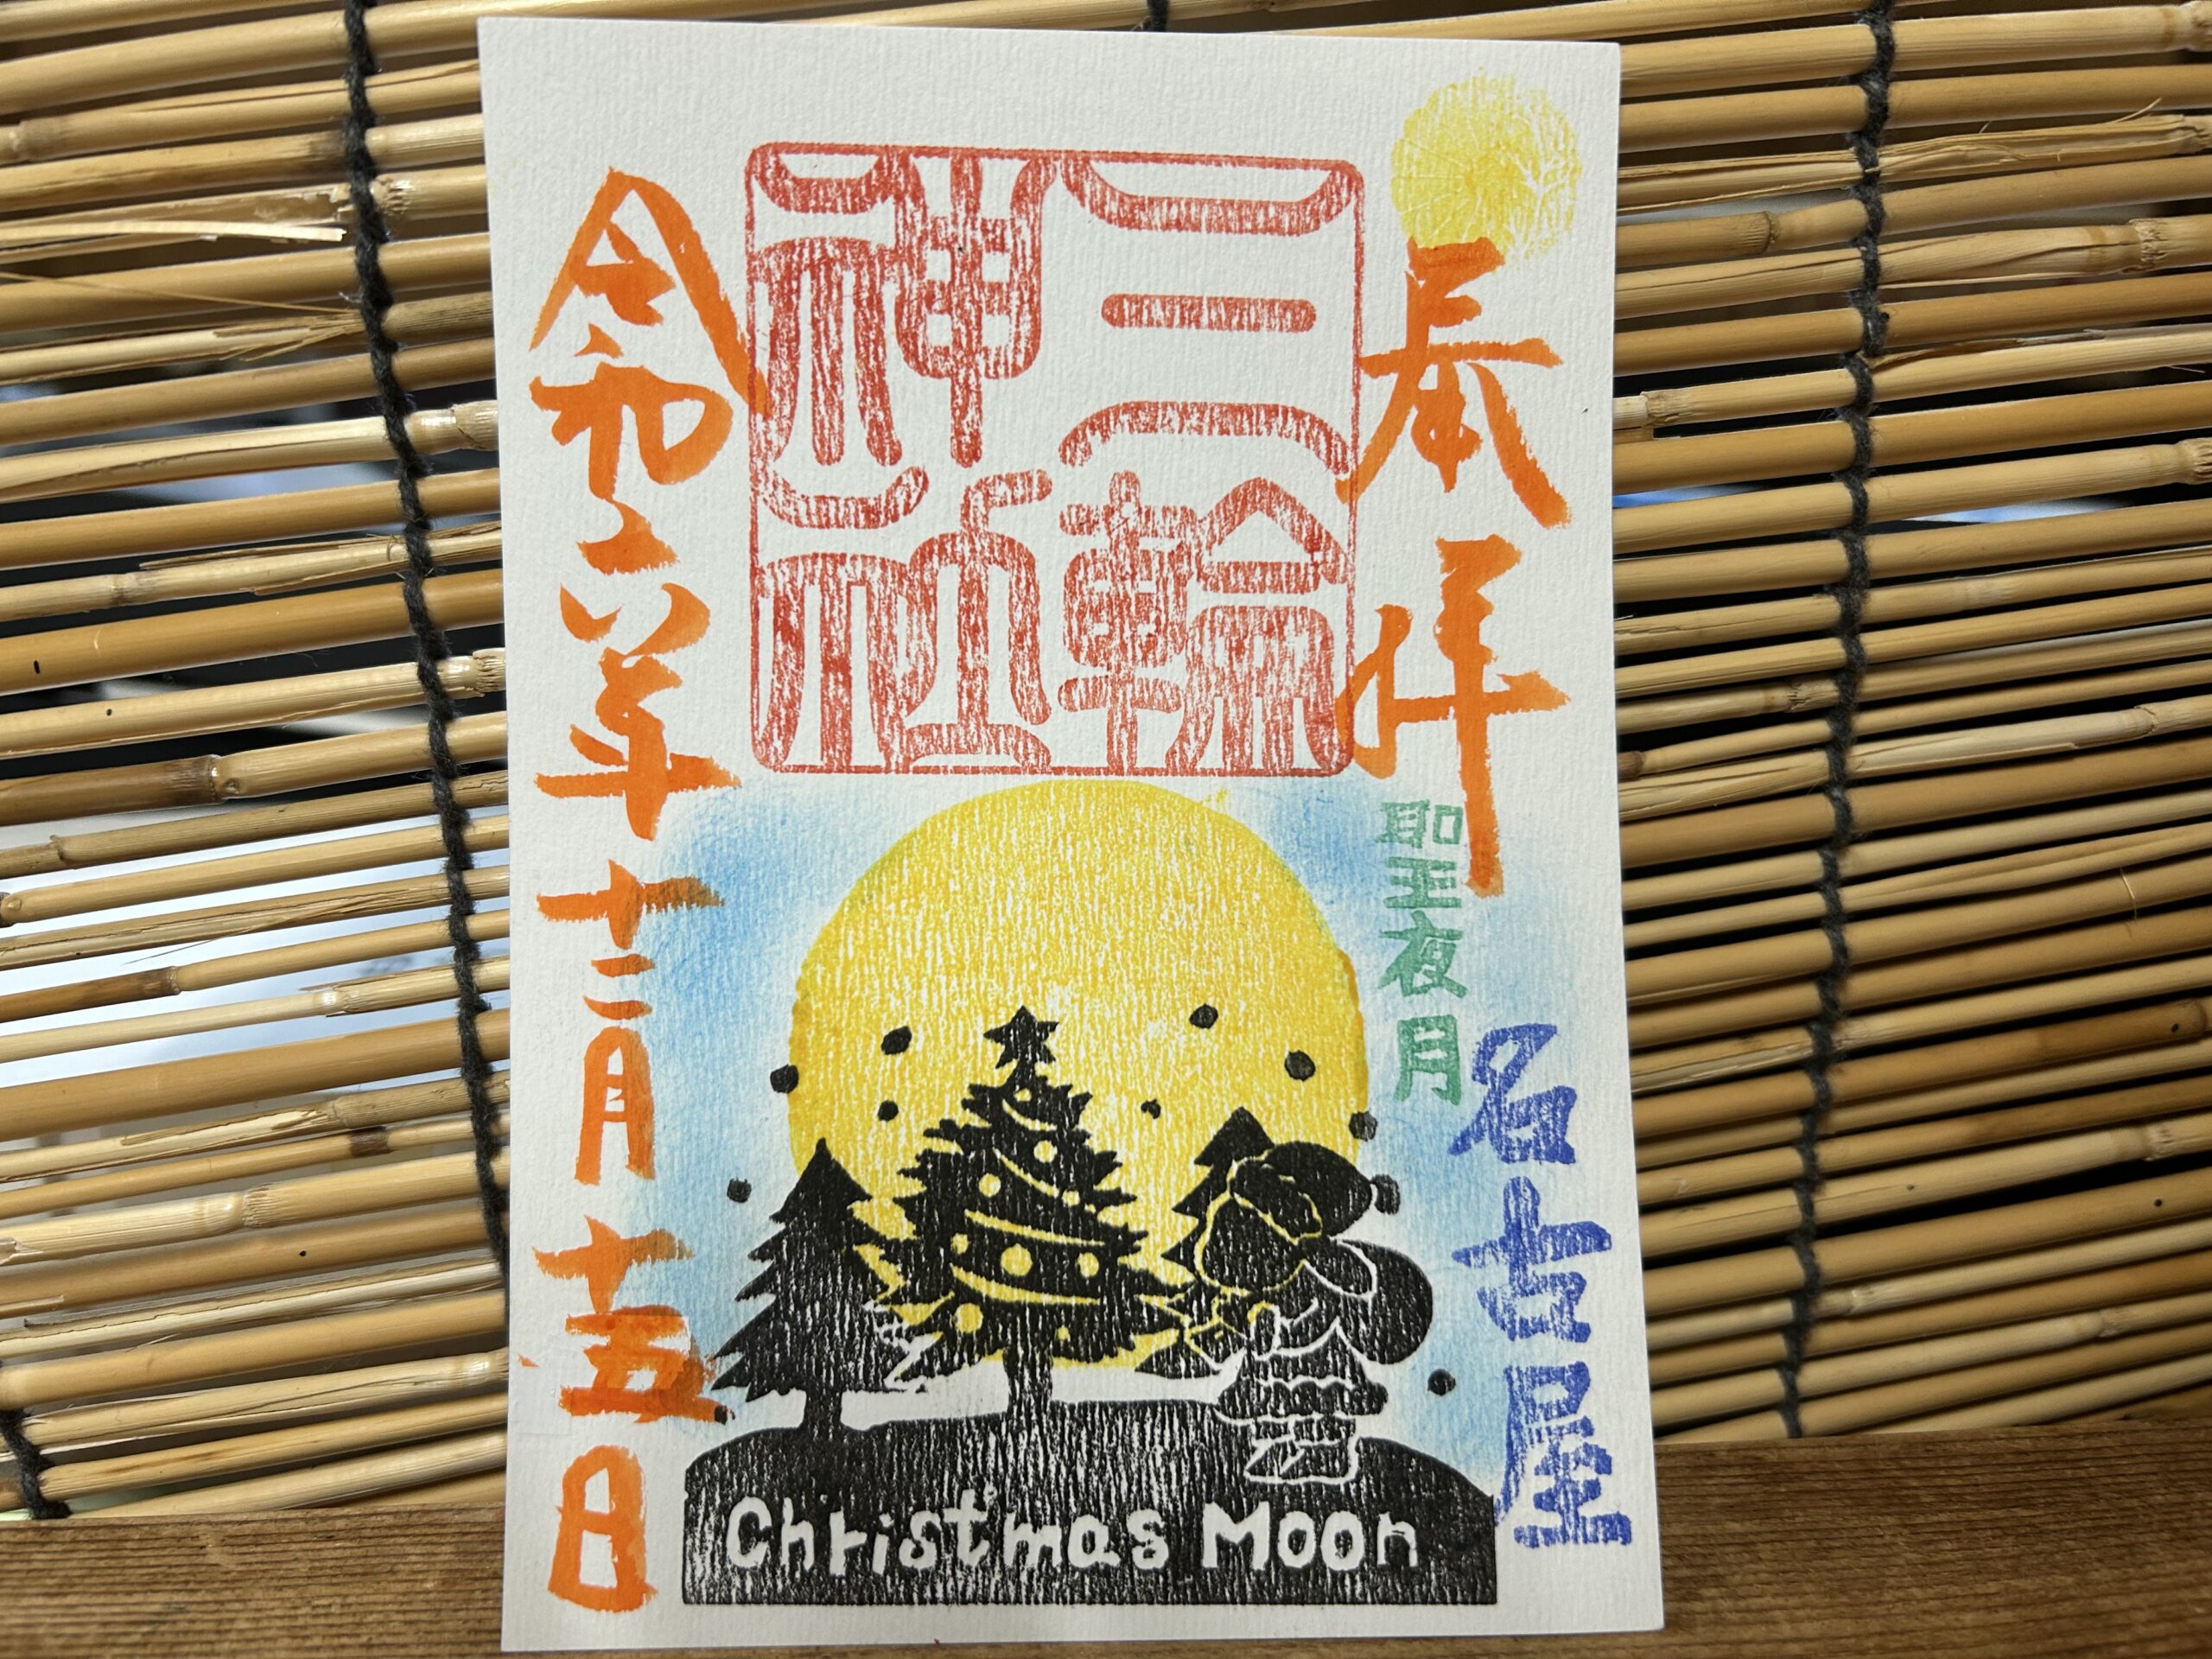 奉拝
聖夜月
名古屋
三輪
神社
令和六年十二月十五日
Christmas Moon